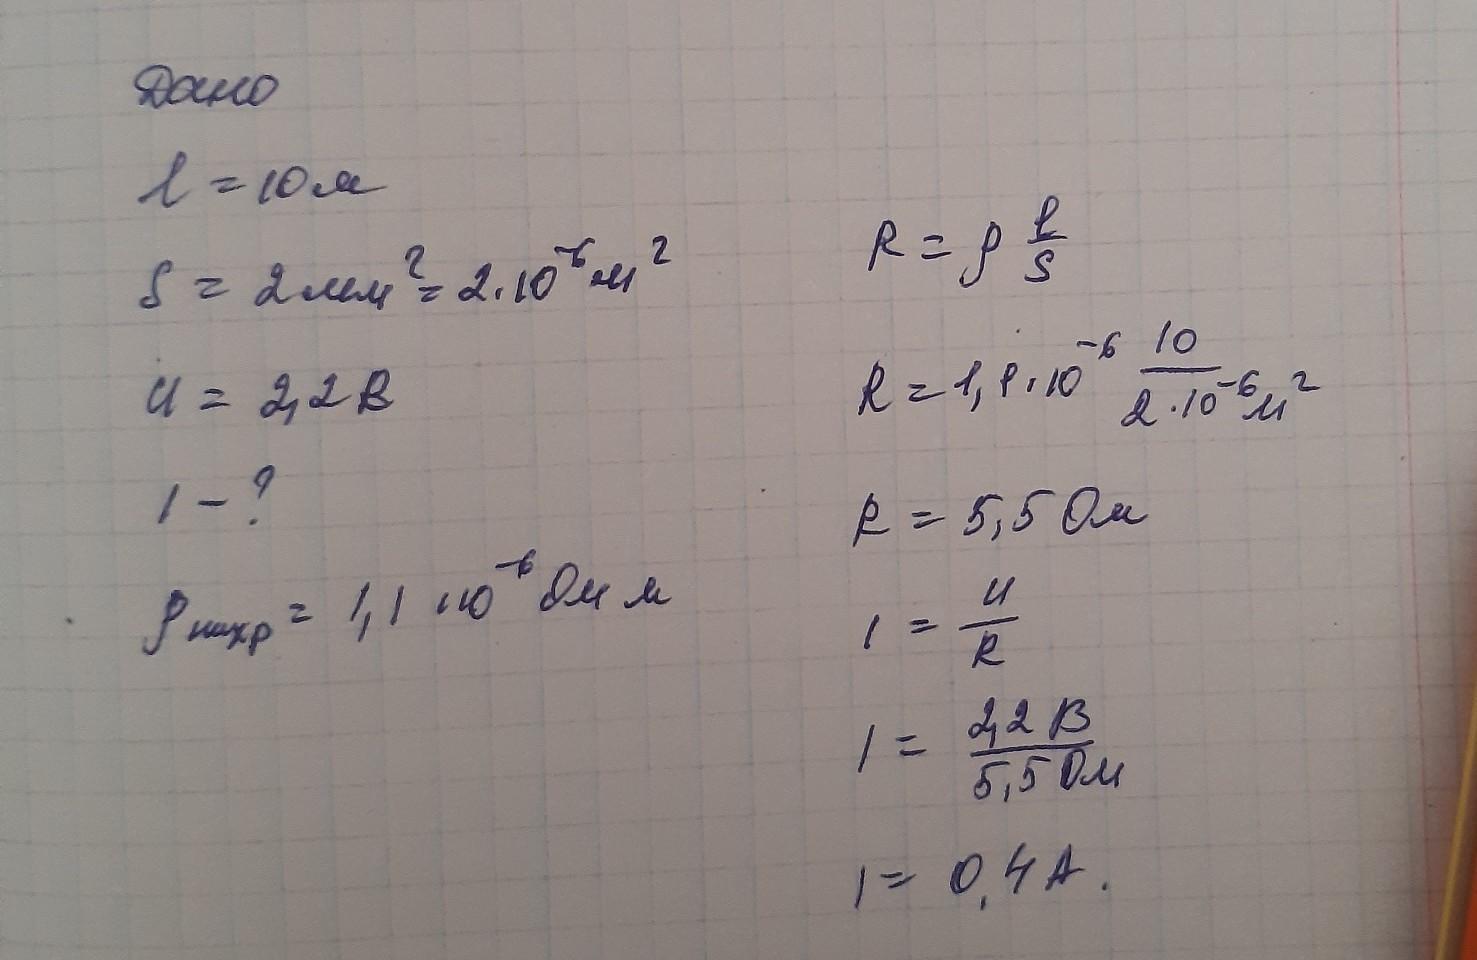 Дано
l = 10 м
S = 2 мм² = 2·10⁻⁶ м²
U = 2,2 В
I - ?
ρнихр = 1,1·10⁻⁶ Ом м
R = ρ l/S
R = 1,1·10⁻⁶ 10/2·10⁻⁶ м²
R = 5,5 Ом
I = U/R
I = 2,2 В/5,5 Ом
I = 0,4 А.